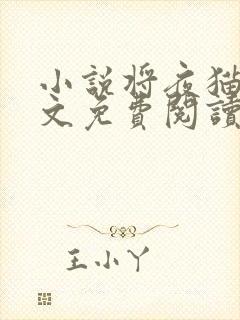 小說將夜猫
文免費閱讀
王小丫